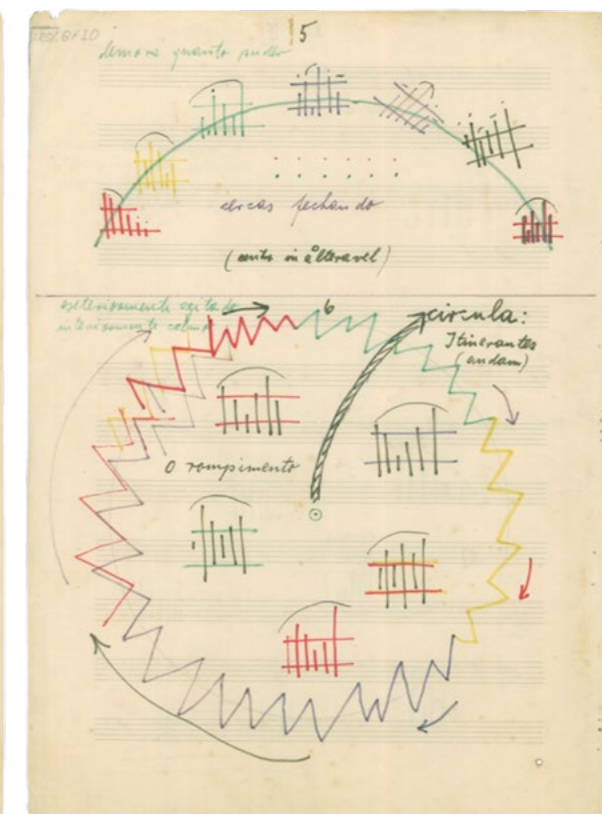 5
demore quanto puder
cercas fechando
(centro inalteravel)
exteriormente agitado
interiormente calmo
6
circula:
Itinerantes
(andam)
O rompimento